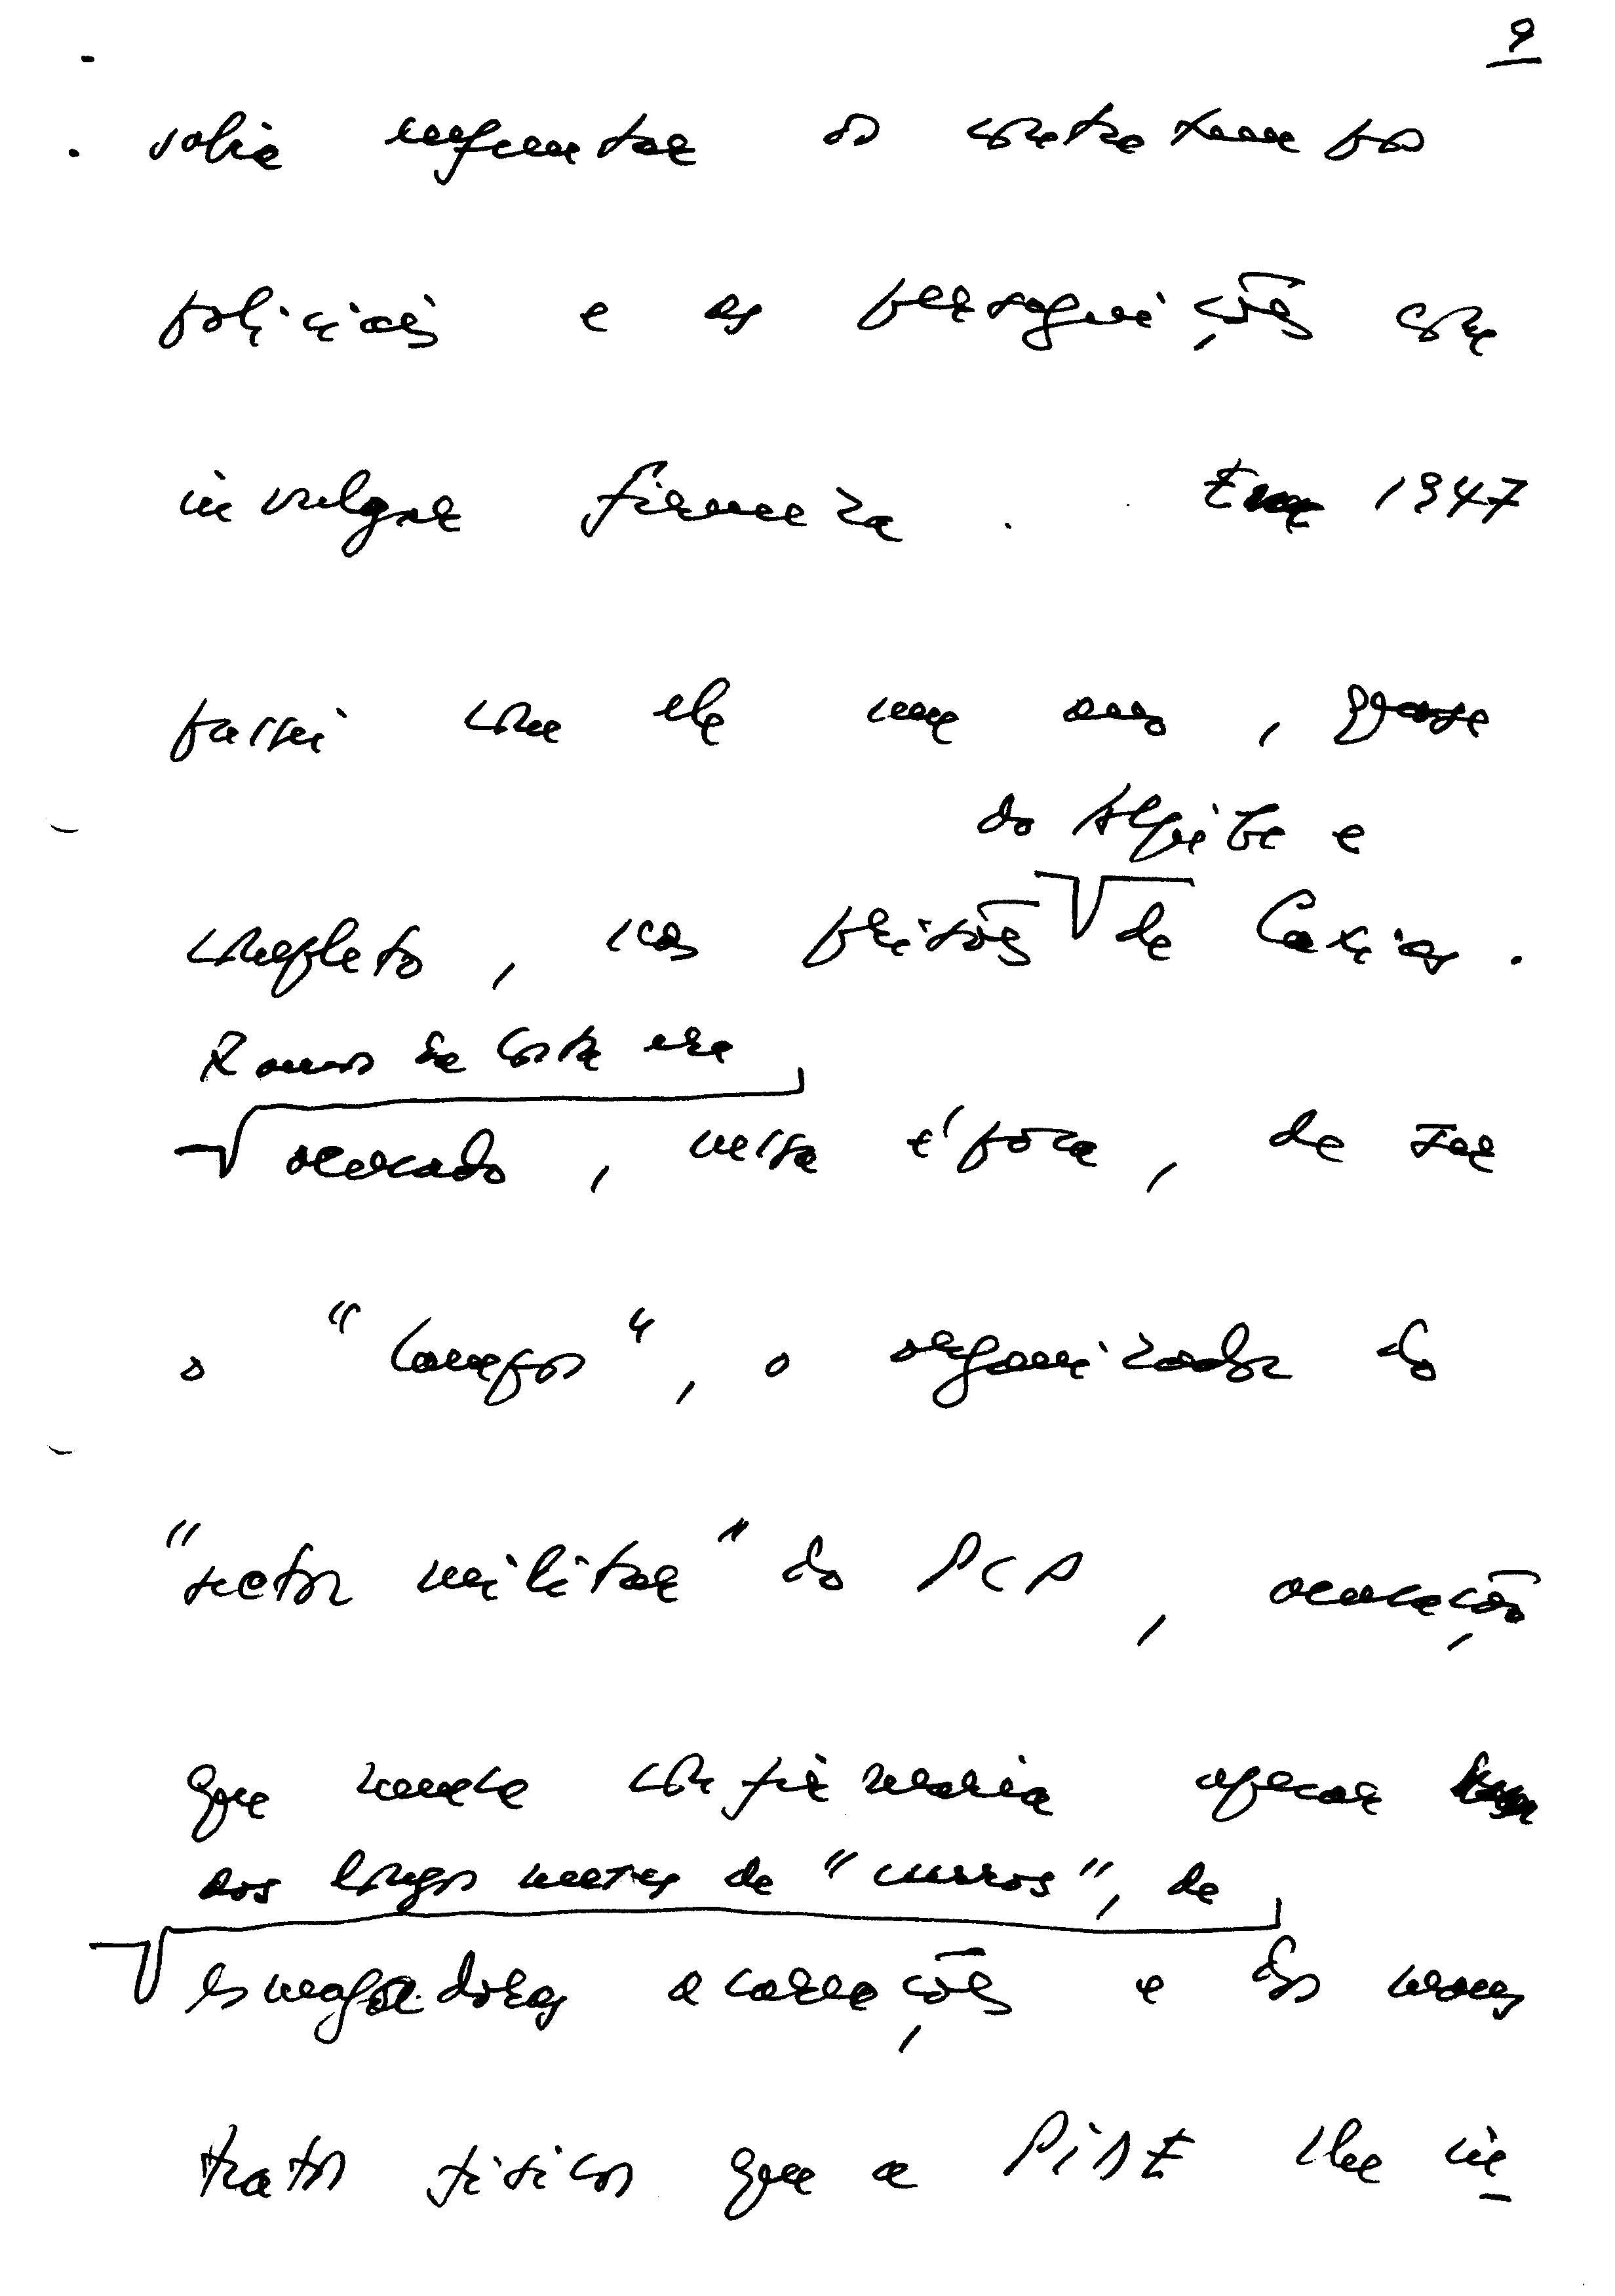 9
sabia enfrentar os contratempos
policiais e as perseguições com
invulgar firmeza. Em 1947
passei com ele um ano, quase
do Aljube e
completo, nas prisões de Caxias.
Ramos da Costa era
acusado, nessa época, de ser
o "Campos", o organizador do
"sector militar" do PCP, acusação
que nunca confirmaria apesar
dos longos meses de "curros", de
esmagadoras acareações e dos maus
tratos físicos que a PIDE lhe in